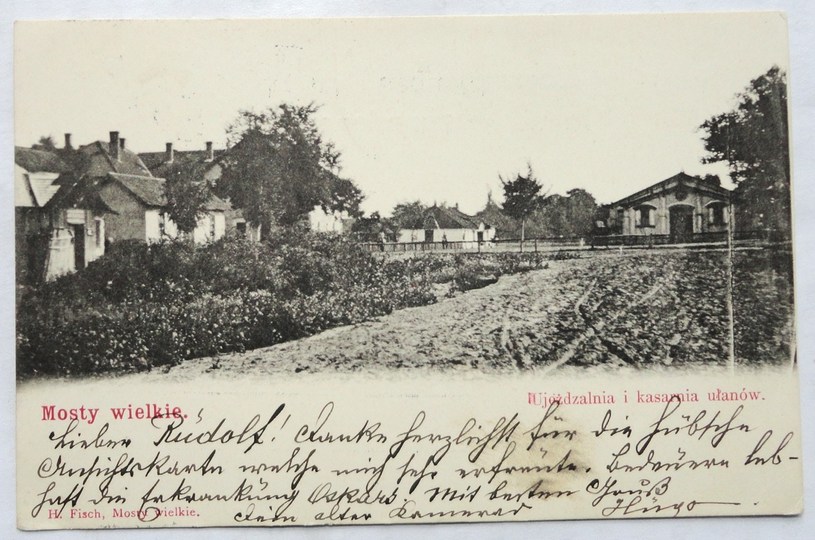 Mosty wielkie.
Ujeżdzalnia i kasarnia ułanów.
Lieber Rudolf! Danke herzlichst für die hübsche
Ansichtskarte welche mich sehr erfreute. Bedauere leb-
haft die Erkrankung Oskars. Mit besten Gruß
Dein alter Kamerad Hugo
H. Fisch, Mosty wielkie.